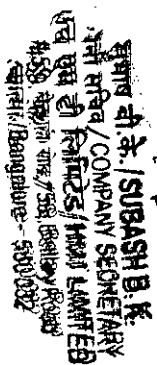 सुभाष बी.के./SUBASH B.K.
कंपनी सचिव/COMPANY SECRETARY
एच एम टी लिमिटेड/HMT LIMITED
#59, बेल्लारी रोड/#59, Bellary Road
/Bangalore - 560032